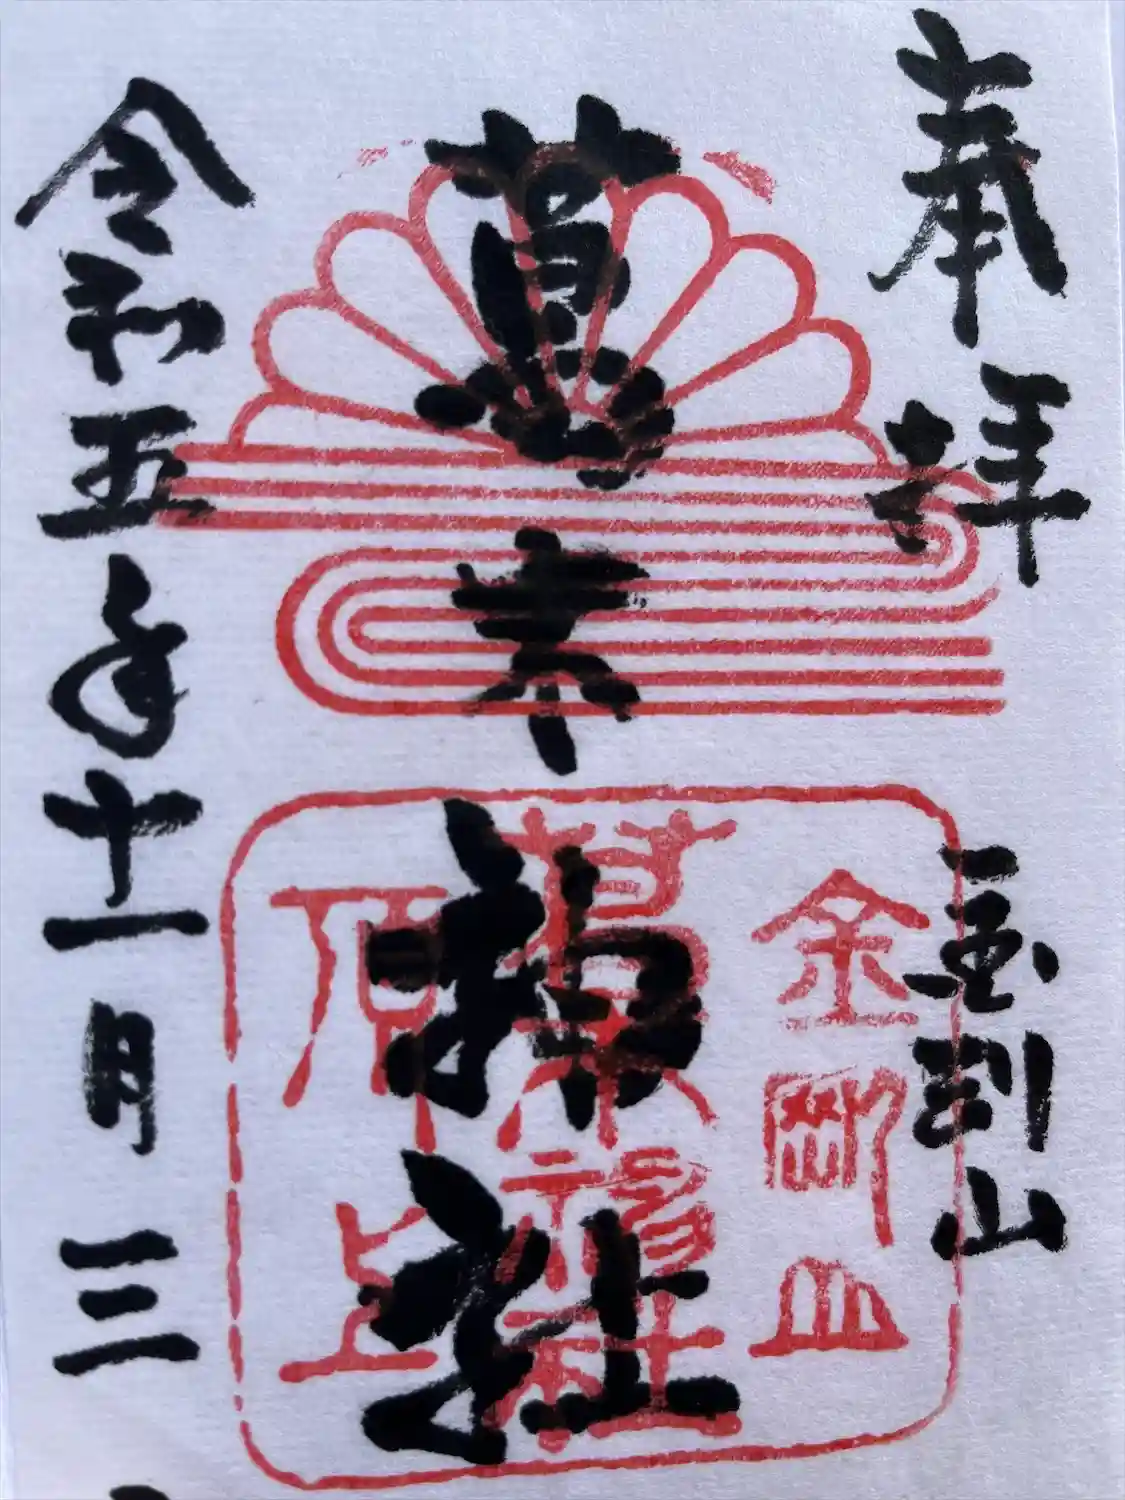 奉拝
金剛山
葛木神社
令和五年十一月三
金剛山
葛木神社
頂上